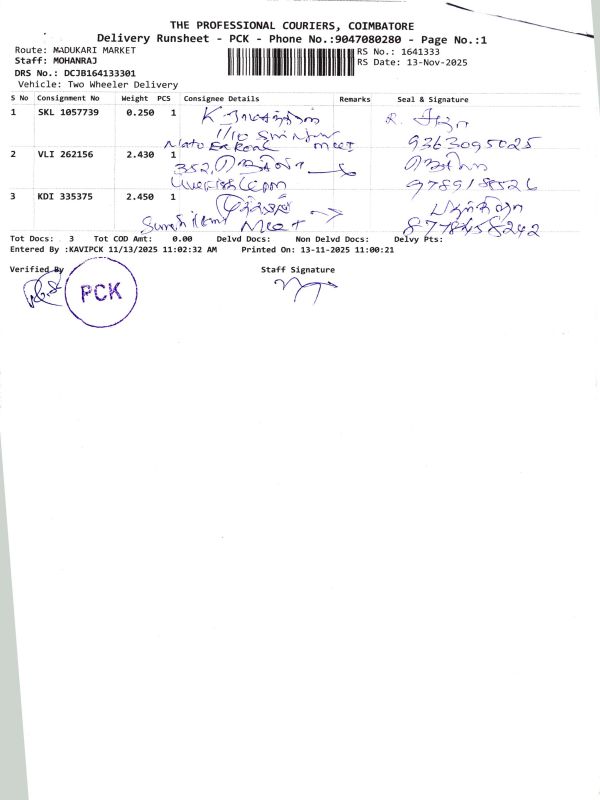 THE PROFESSIONAL COURIERS, COIMBATORE
Delivery Runsheet - PCK - Phone No.:9047080280 - Page No.:1
Route: MADUKARI MARKET
RS No.: 1641333
Staff: MOHANRAJ
RS Date: 13-Nov-2025
DRS No.: DCJB164133301
Vehicle: Two Wheeler Delivery
S No Consignment No Weight PCS Consignee Details Remarks Seal & Signature
1 SKL 1057739 0.250 1
1/10
9363095025
2 VLI 262156 2.430 1
352,
9789189526
3 KDI 335375 2.450 1
8778458242
Tot Docs: 3 Tot COD Amt: 0.00 Delvd Docs: Non Delvd Docs: Delvy Pts:
Entered By :KAVIPCK 11/13/2025 11:02:32 AM Printed On: 13-11-2025 11:00:21
Verified By Staff Signature
PCK